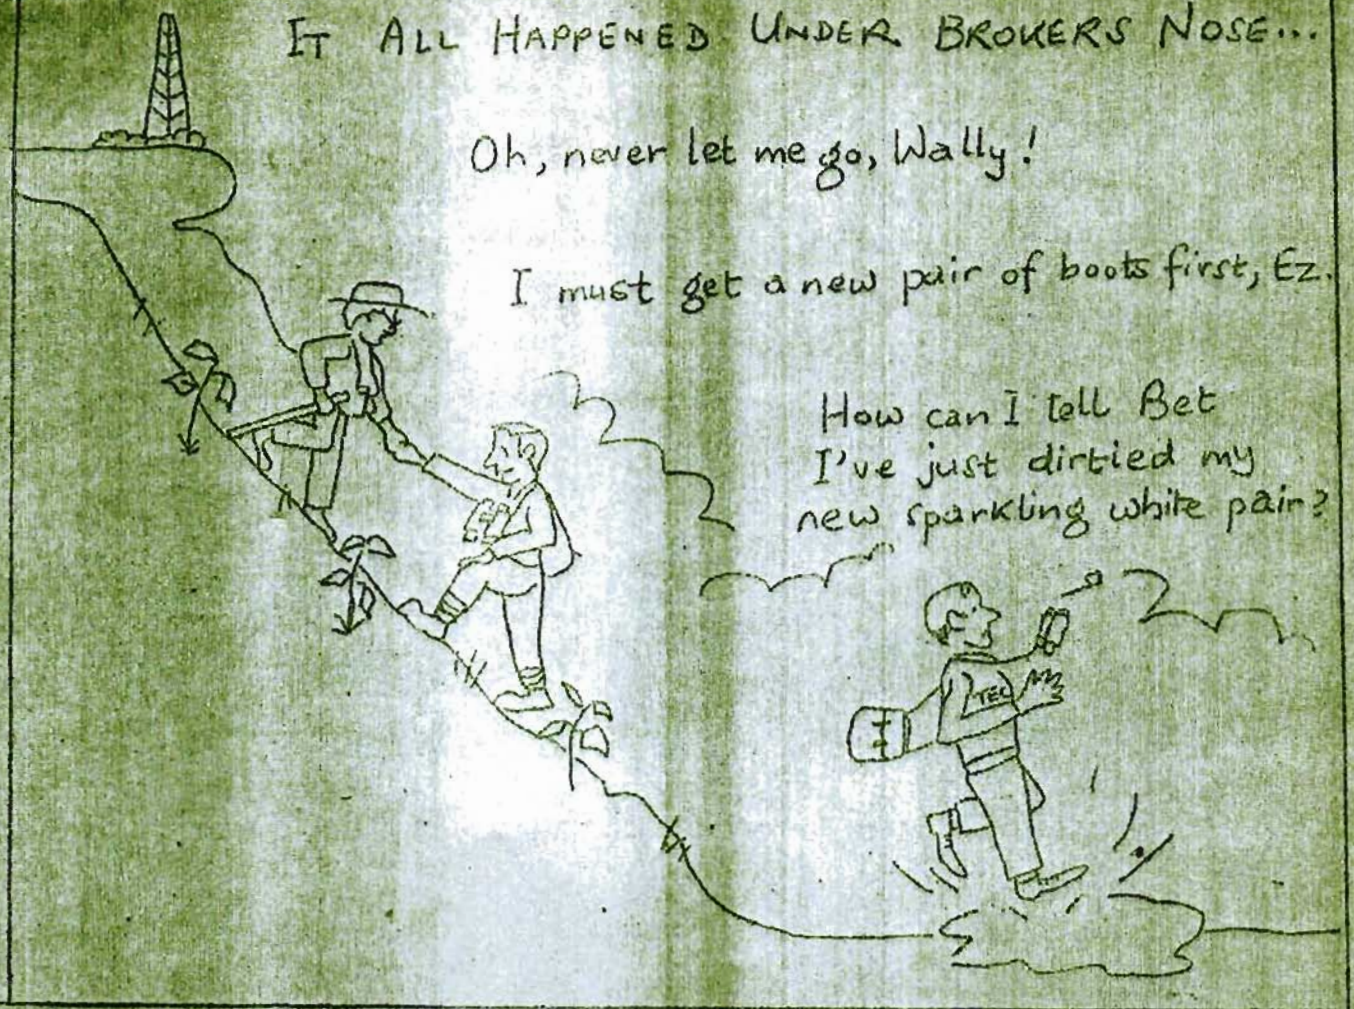 IT ALL HAPPENED UNDER BROKERS NOSE...
Oh, never let me go, Wally!
I must get a new pair of boots first, Ez.
How can I tell Bet
I've just dirtied my
new sparkling white pair?
TEL